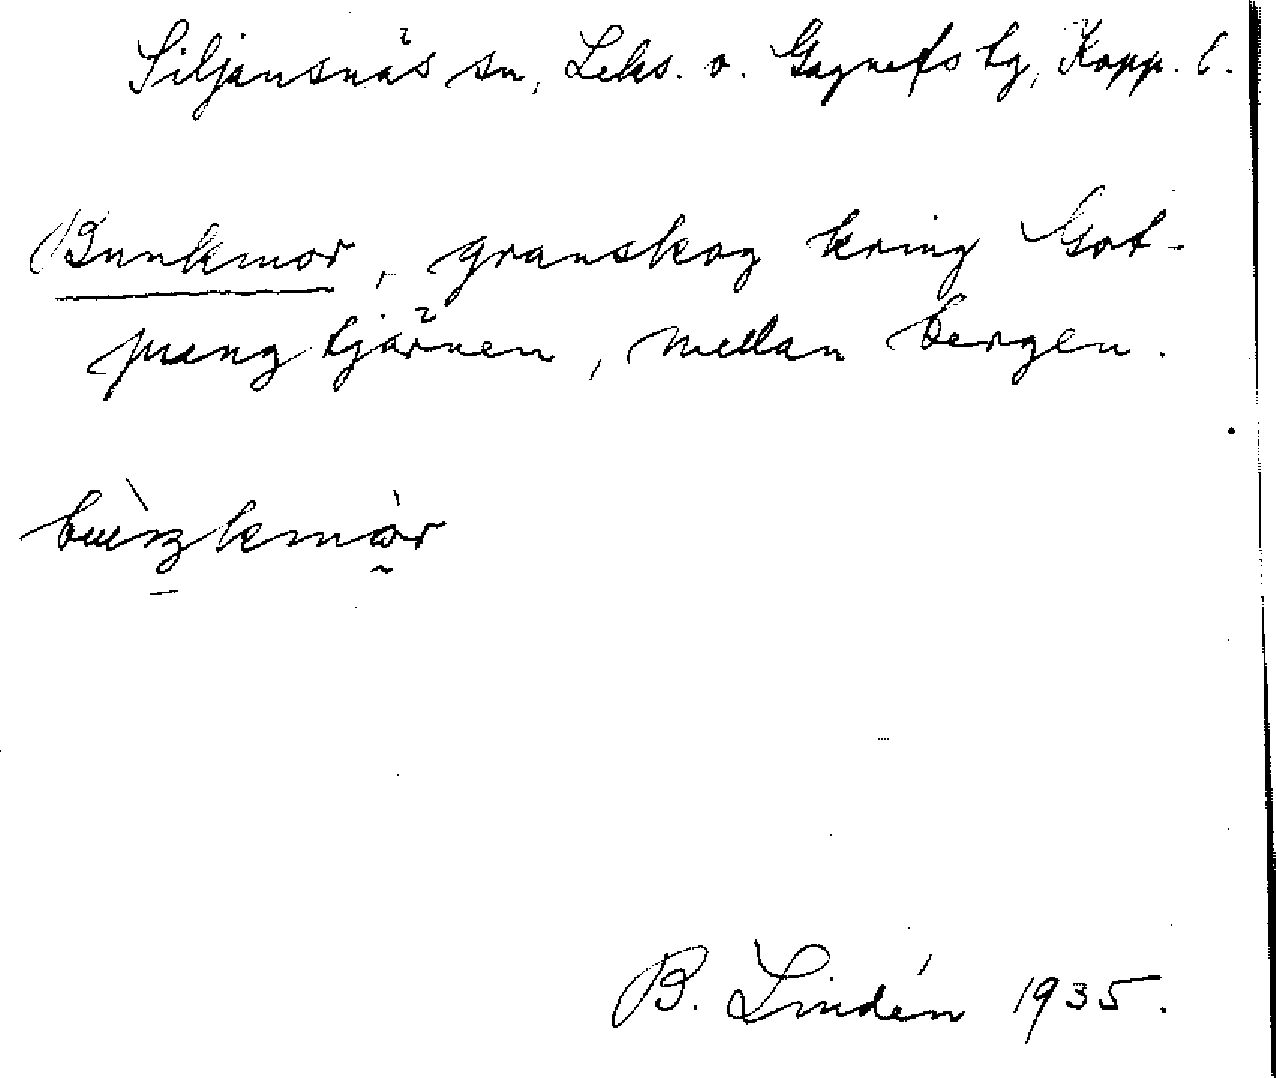 Siljansnäs sn, Leks. o. Gagnefs tg, Kopp. l.
Bunkmor, granskog kring Got-
pungtjärnen, mellan bergen.
B. Lindén 1935.